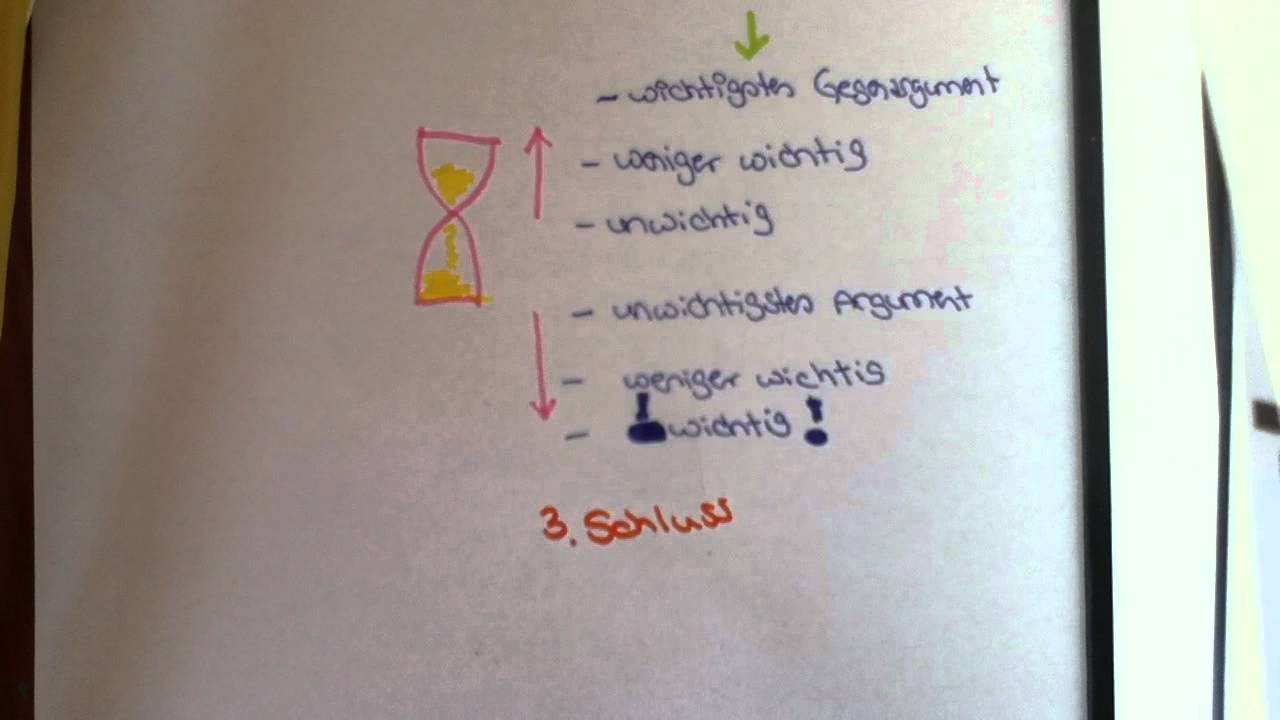 - wichtigstes Gegenargument
- weniger wichtig
- unwichtig
- unwichtigstes Argument
- weniger wichtig
- ! wichtig !
3. Schluss